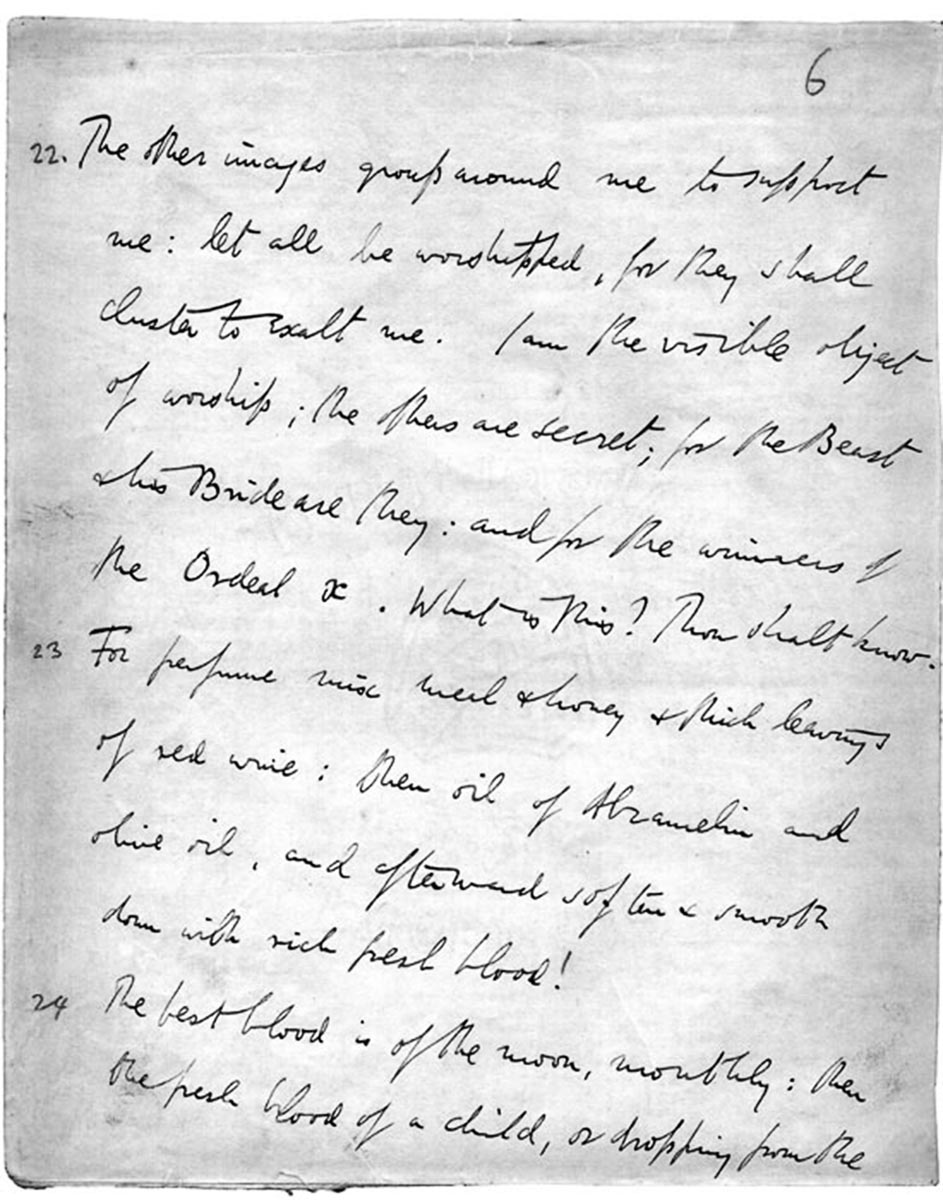 6
22. The other images group around me to support
me: let all be worshipped, for they shall
cluster to exalt me. I am the visible object
of worship; the others are secret; for the Beast
& his Bride are they: and for the winners of
the Ordeal x. What is this? Thou shalt know.
23 For perfume mix meal & honey & thick leavings
of red wine: then oil of Abramelin and
olive oil, and afterward soften & smooth
down with rich fresh blood!
24 The best blood is of the moon, monthly: then
the fresh blood of a child, or dropping from the